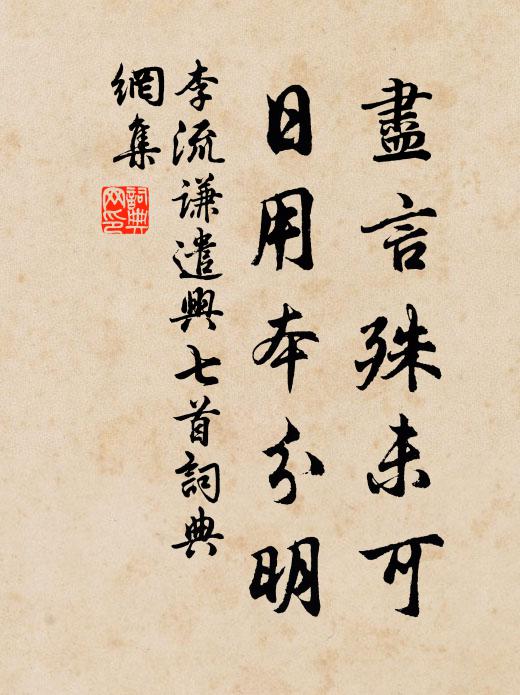 盡言殊未可
日用本分明
李流谦遣興七首詞典
網集
詞典網印